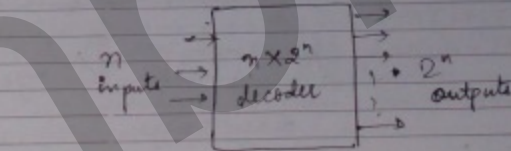 n
inputs
n × 2ⁿ
decoder
2ⁿ
outputs